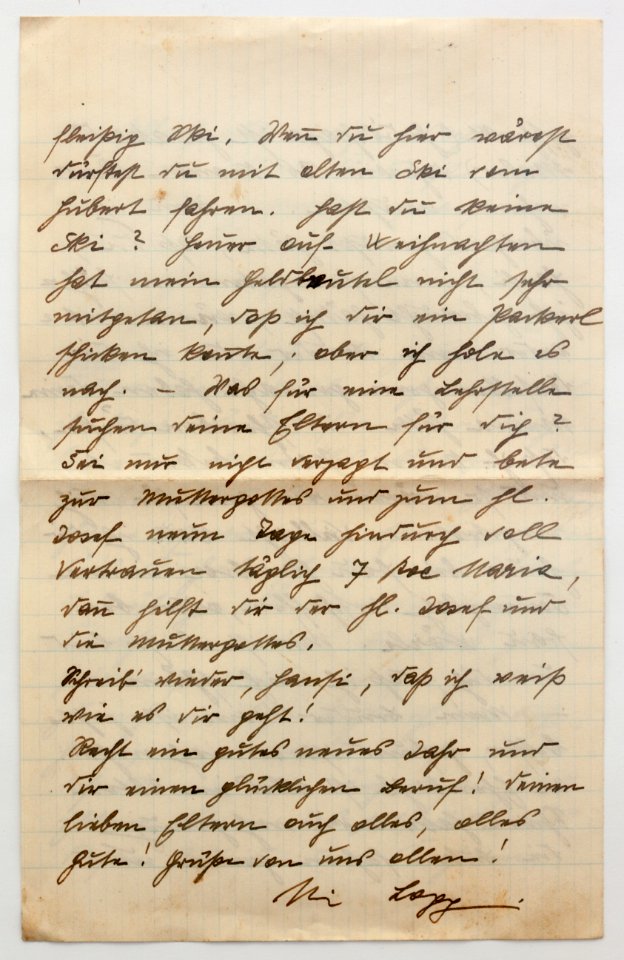 fleißig Ski. Wenn du hier wärest
dürftest du mit alten Ski vom
Hubert fahren. Hast du keine
Ski? Heuer auf Weihnachten
hat mein Geldbeutel nicht sehr
mitgetan, daß ich dir ein Packerl
schicken konnte, aber ich hole es
nach. – Was für eine Lehrstelle
suchen deine Eltern für dich?
Sei nur nicht verzagt und bete
zur Muttergottes und zum hl.
Josef neun Tage hindurch voll
Vertrauen täglich 7 Ave Maria,
dann hilft dir der hl. Josef und
die Muttergottes.
Schreib' wieder, Hansi, daß ich weiß
wie es dir geht!
Recht ein gutes neues Jahr und
dir einen glücklichen Beruf! Deinen
lieben Eltern auch alles, alles
Gute! Grüße von uns allen!